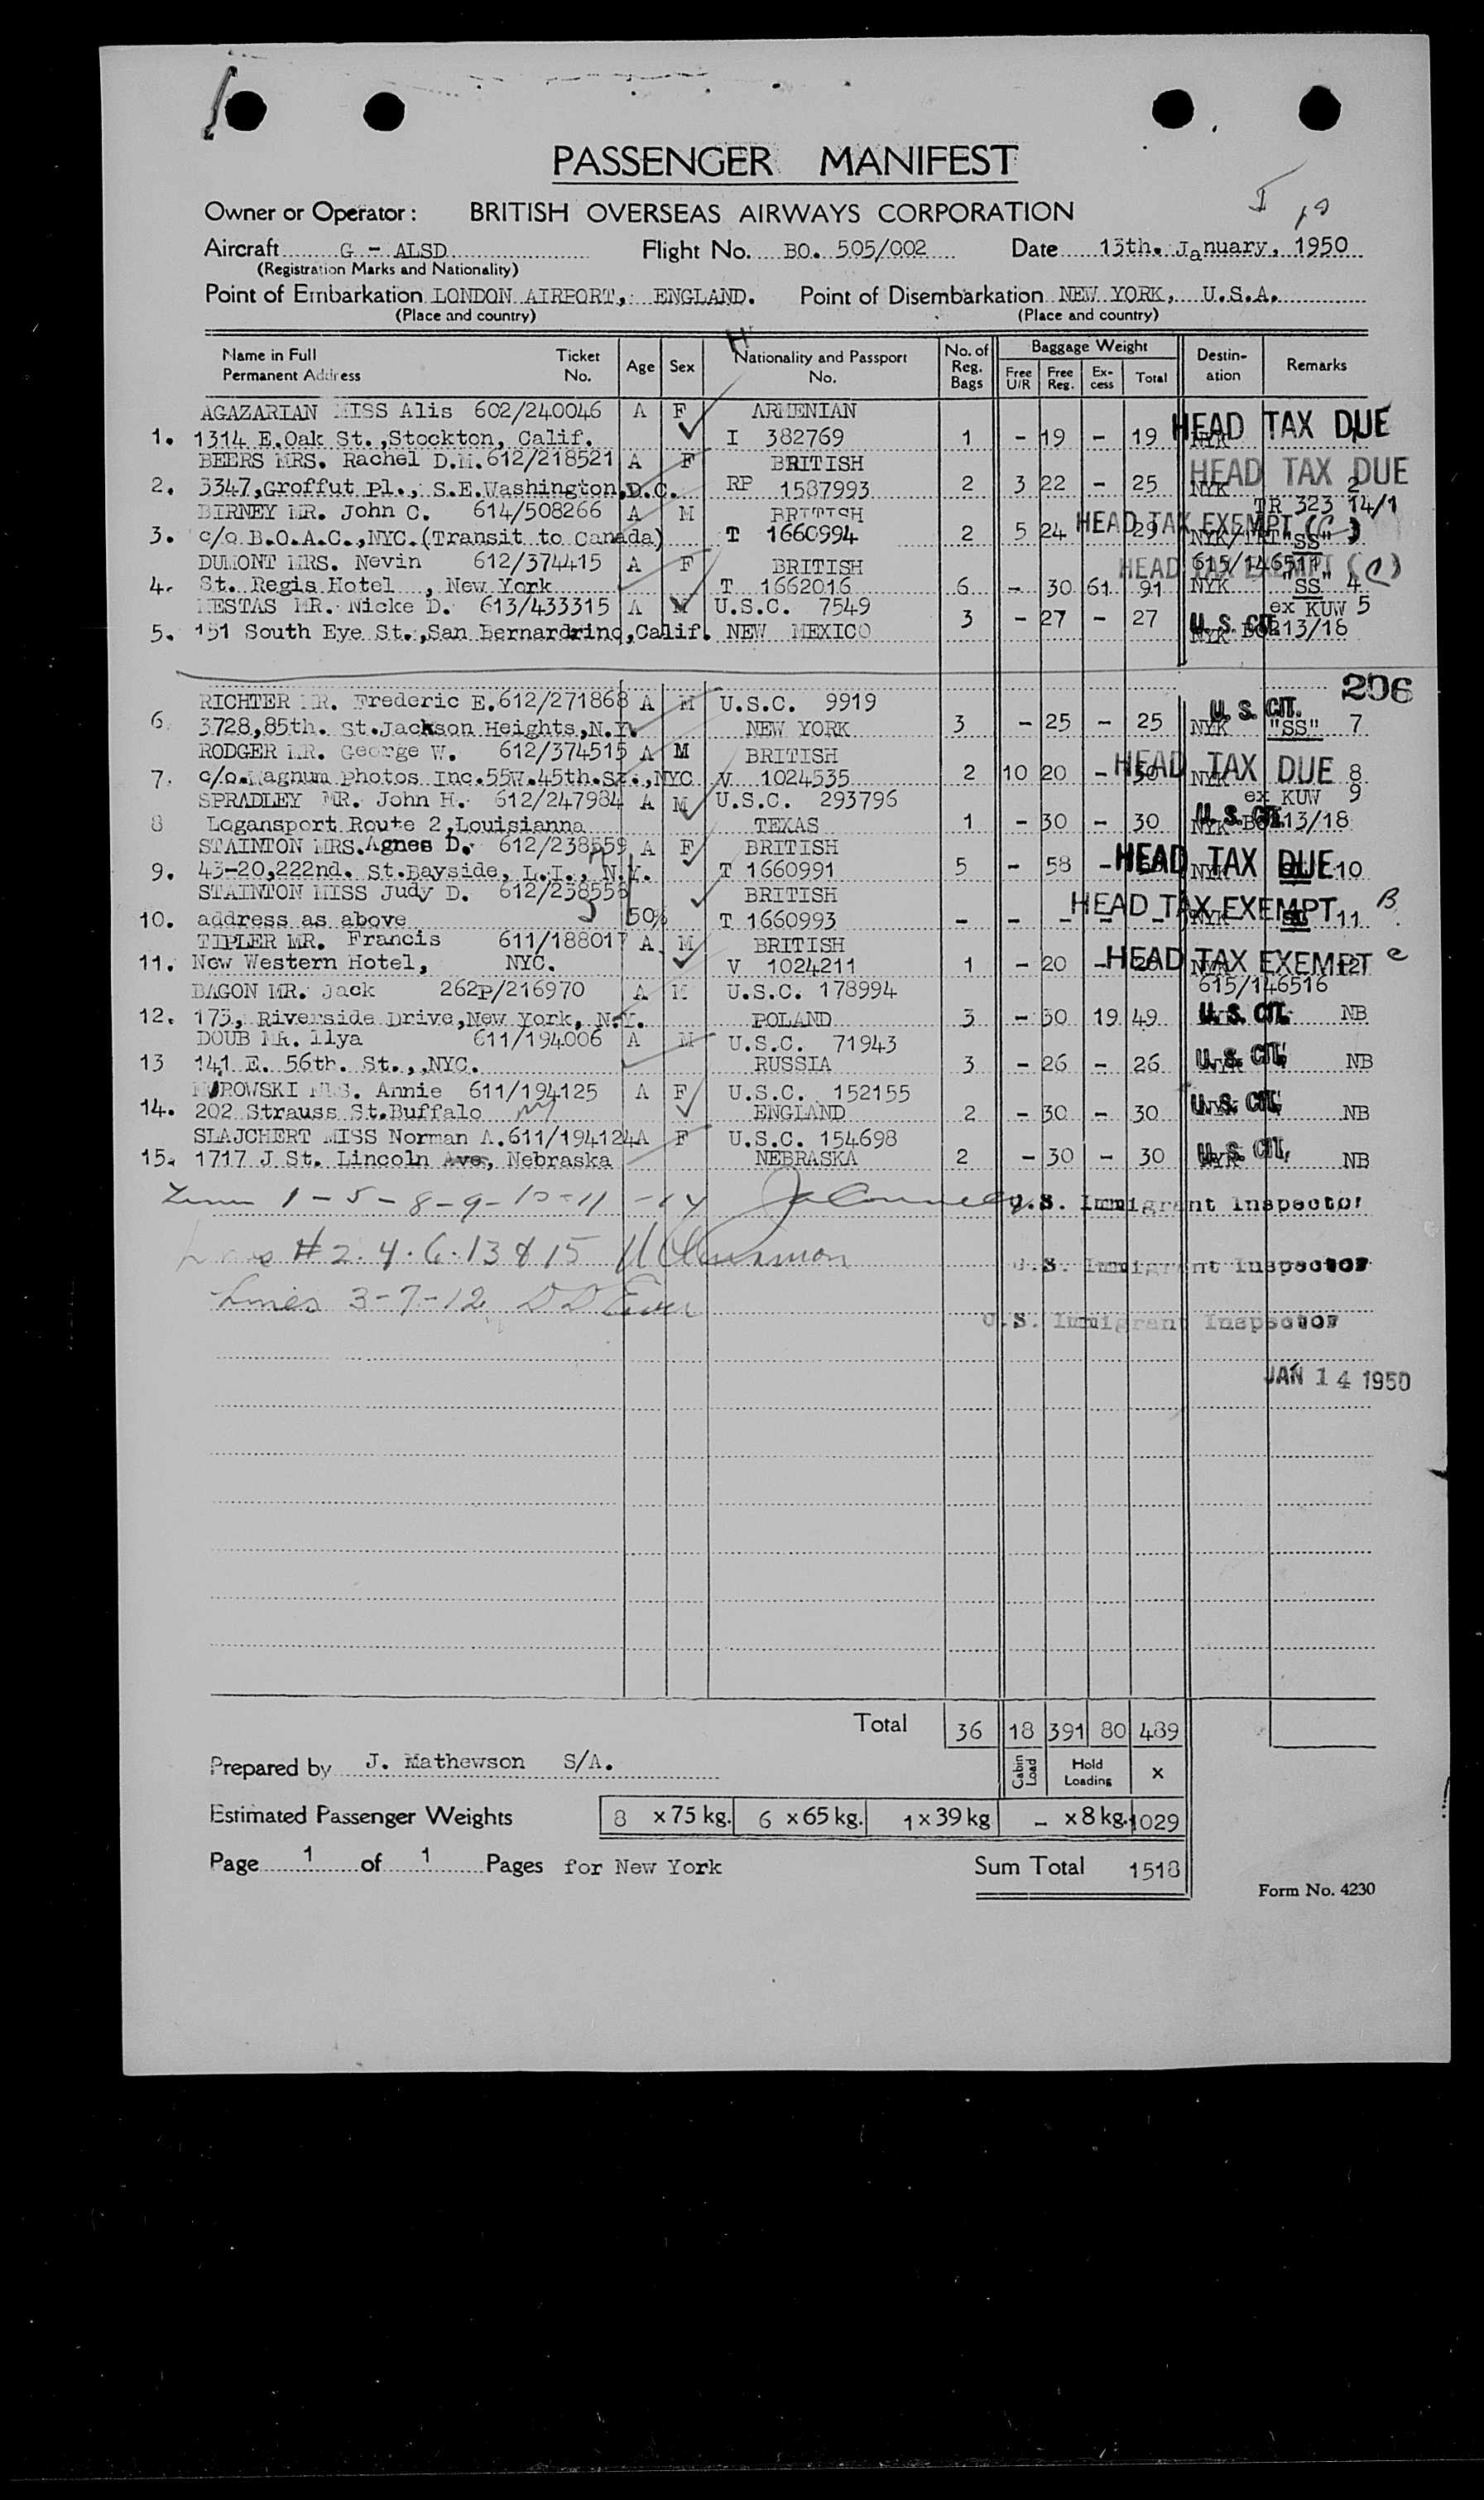 PASSENGER MANIFEST
Owner or Operator: BRITISH OVERSEAS AIRWAYS CORPORATION
Aircraft G - ALSD Flight No. BO. 505/002 Date 13th. January, 1950
(Registration Marks and Nationality)
Point of Embarkation LONDON AIRPORT, ENGLAND. Point of Disembarkation NEW YORK, U.S.A.
(Place and country) (Place and country)
Name in Full Permanent Address Ticket No. Age Sex Nationality and Passport No. No. of Reg. Bags Baggage Weight Free U/R Free Reg. Ex-cess Total Destin-ation Remarks
AGAZARIAN MISS Alis 602/240046 A F ARMENIAN
1. 1314 E.Oak St.,Stockton, Calif. I 382769 1 - 19 - 19 NYK HEAD TAX DUE 1
BEERS MRS. Rachel D.M. 612/218521 A F BRITISH
2. 3347,Groffut Pl., S.E.Washington,D.C. RP 1587993 2 3 22 - 25 NYK HEAD TAX DUE 2
BIRNEY MR. John C. 614/508266 A M BRITISH TR 323 14/1
3. c/o B.O.A.C.,NYC.(Transit to Canada) T 1660994 2 5 24 29 HEAD TAX EXEMPT (C) NYK/TRT "SS"
DUMONT MRS. Nevin 612/374415 A F BRITISH 615/146511
4. St. Regis Hotel , New York T 1662016 6 - 30 61 91 HEAD TAX EXEMPT (C) NYK "SS" 4
MESTAS MR. Nicke D. 613/433315 A M U.S.C. 7549 ex KUW 5
5. 151 South Eye St.,San Bernardrino,Calif. NEW MEXICO 3 - 27 - 27 U.S. CIT. NYK BO213/18
206
RICHTER MR. Frederic E.612/271868 A M U.S.C. 9919
6. 3728,85th. St.Jackson Heights,N.Y. NEW YORK 3 - 25 - 25 U.S. CIT. NYK "SS" 7
RODGER MR. George W. 612/374515 A M BRITISH
7. c/o.Magnum Photos Inc.55W.45th.St.,NYC V 1024535 2 10 20 - 30 HEAD TAX DUE NYK 8
SPRADLEY MR. John H. 612/247984 A M U.S.C. 293796 ex KUW 9
8 Logansport Route 2,Louisianna TEXAS 1 - 30 - 30 U.S. CIT. NYK BO213/18
STAINTON MRS.Agnes D. 612/238559 A F BRITISH
9. 43-20,222nd. St.Bayside, L.I., N.Y. T 1660991 5 - 58 - 58 HEAD TAX DUE NYK 10
STAINTON MISS Judy D. 612/238558 BRITISH
10. address as above 50% T 1660993 - - - - - HEAD TAX EXEMPT NYK 11 B
TIPLER MR. Francis 611/188017 A M BRITISH
11. New Western Hotel, NYC. V 1024211 1 - 20 - 20 HEAD TAX EXEMPT NYK 12 C
BAGON MR. Jack 262P/216970 A M U.S.C. 178994 615/146516
12. 173, Riverside Drive,New York, N.Y. POLAND 3 - 30 19 49 U.S. CIT. NB
DOUB MR. Ilya 611/194006 A M U.S.C. 71943
13 141 E. 56th. St.,,NYC. RUSSIA 3 - 26 - 26 U.S. CIT. NB
MRS. Annie 611/194125 A F U.S.C. 152155
14. 202 Strauss St.Buffalo NY ENGLAND 2 - 30 - 30 U.S. CIT. NYK NB
SLAJCHERT MISS Norman A.611/194124A F U.S.C. 154698
15. 1717 J St. Lincoln Ave, Nebraska NEBRASKA 2 - 30 - 30 U.S. CIT. NYK NB
1-5-8-9-10-11-14 U.S. Immigrant Inspector
Lines #2.4.6.13 & 15 U.S. Immigrant Inspector
Lines 3-7-12 U.S. Immigrant Inspector
JAN 14 1950
Total 36 18 391 80 489
Prepared by J. Mathewson S/A. Cabin Load Hold Loading X
Estimated Passenger Weights 8 x 75 kg. 6 x 65 kg. 1 x 39 kg - x 8 kg. 1029
Page 1 of 1 Pages for New York Sum Total 1518
Form No. 4230